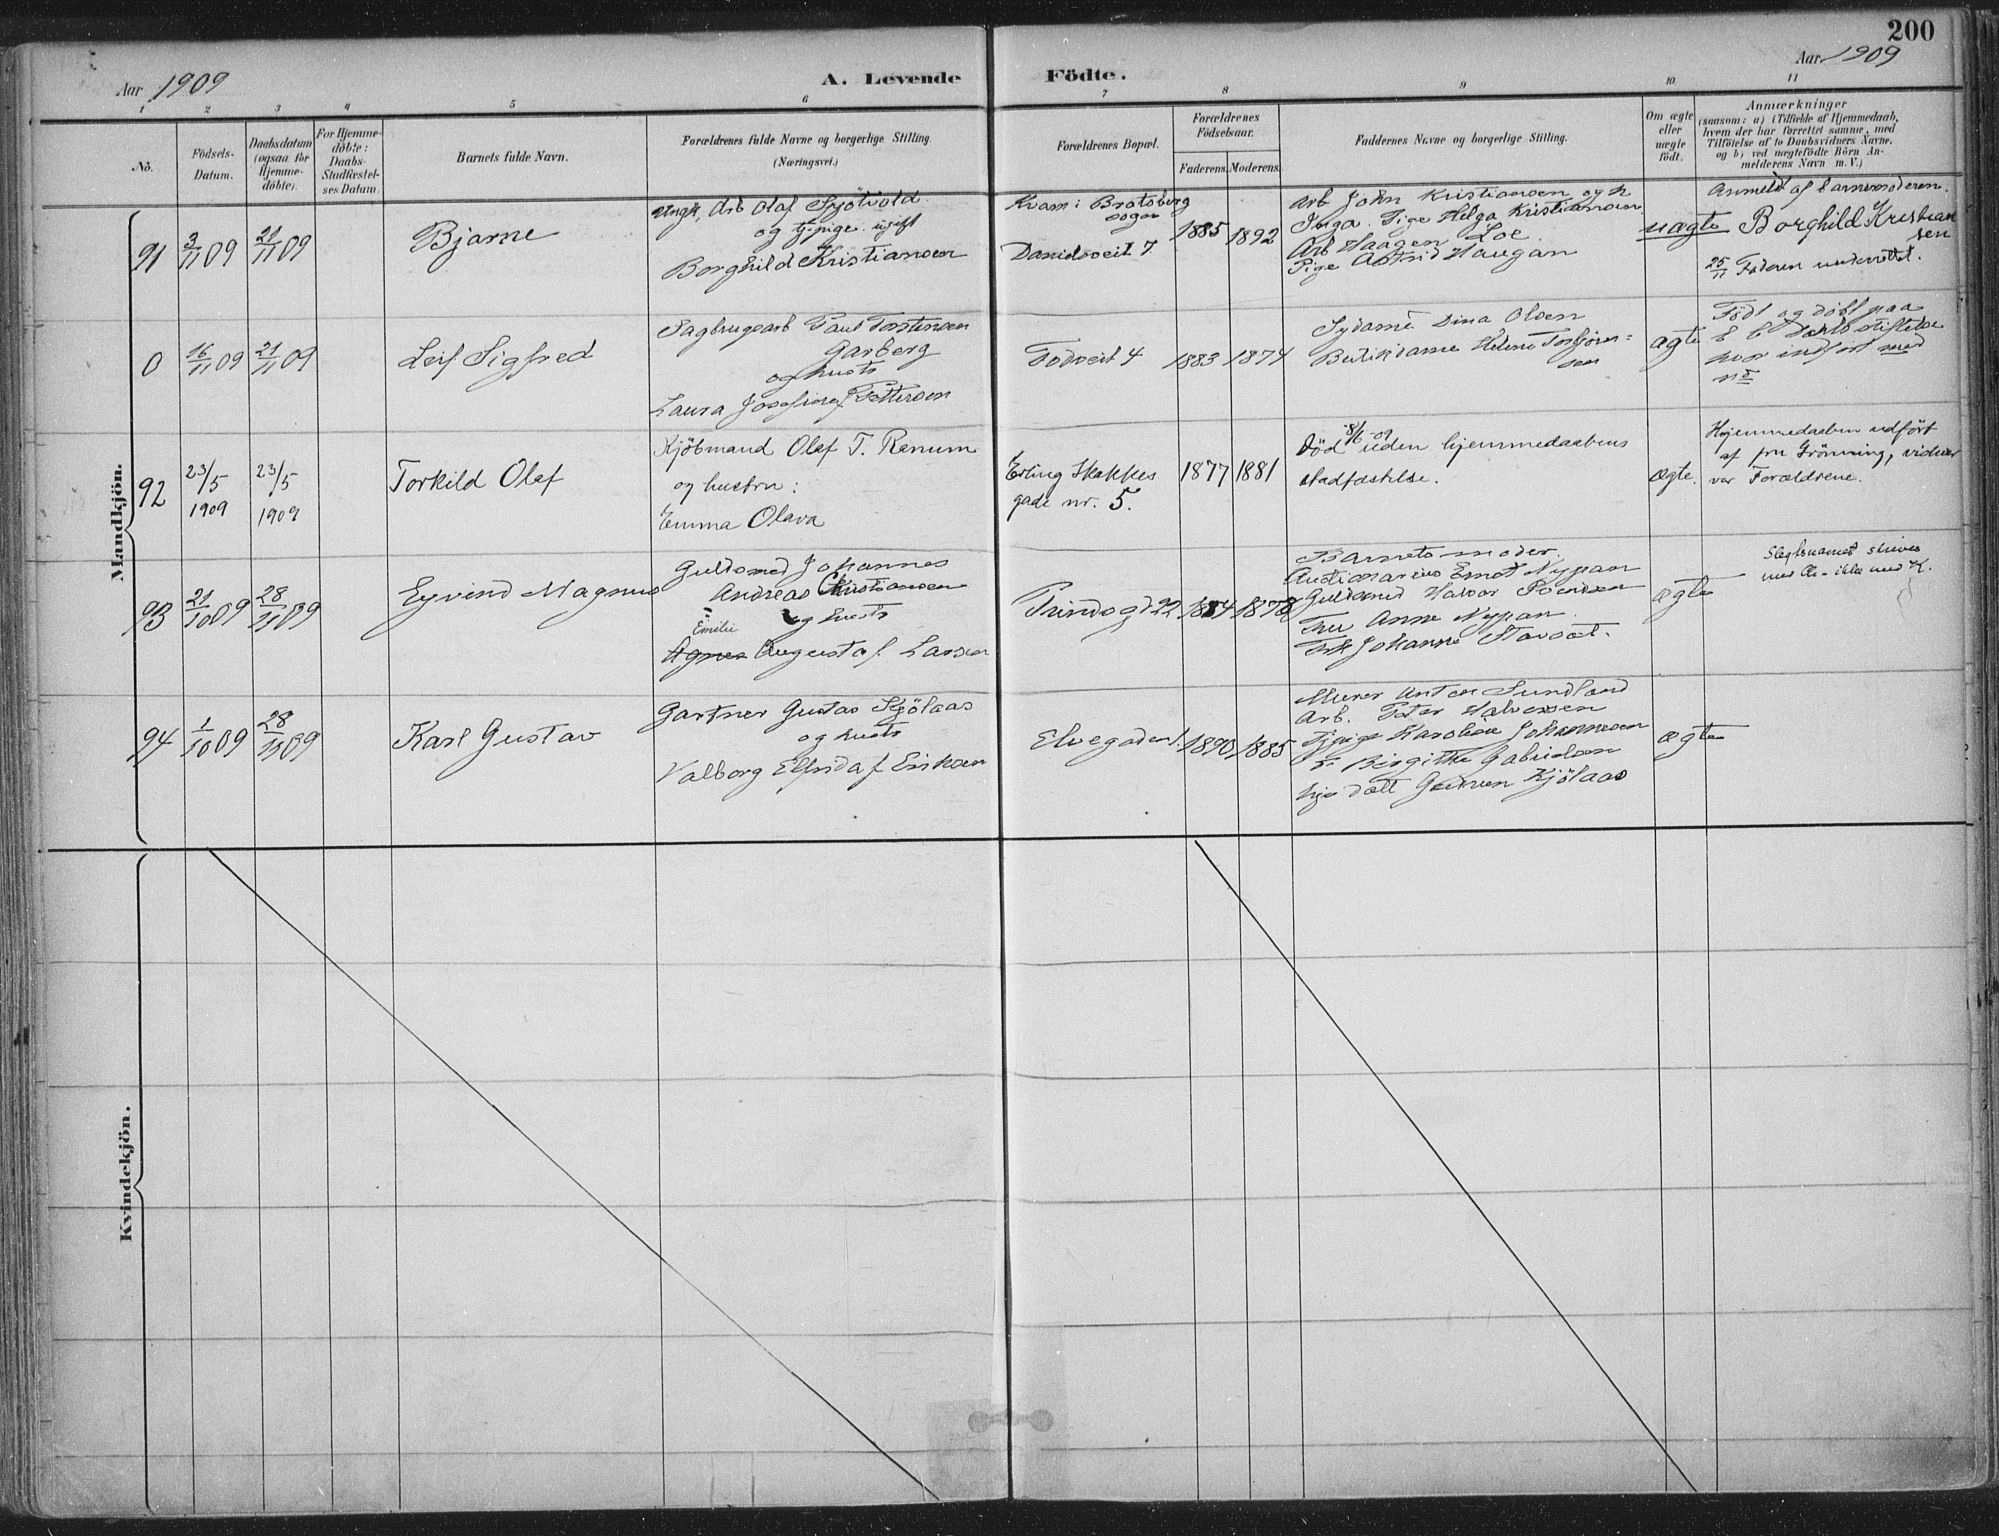 200
Aar 1909
A. Levende Födte.
Aar 1909
1 2 3 4 5 6 7 8 9 10 11
No.
Födsels-Datum.
Daabsdatum (ogsaa for Hjemme-döbte).
For Hjemme-döbte: Daabs-Stadfæstel-ses Datum.
Barnets fulde Navn.
Forældrenes fulde Navne og borgerlige Stilling
(Næringsvei.)
Forældrenes Bopæl.
Forældrenes Födselsaar.
Faderens. Moderens.
Faddernes Navne og borgerlige Stilling.
Om ægte eller uægte födt.
Anmærkninger
(saasom: a) i Tilfælde af Hjemmedaab,
hvem der har forrettet samme, med
Tilföielse af to Daabsvidners Navne,
og b) ved uægtefödte Börn An-
melderens Navn m. V.)
Mandkjön.
91
2/11 09
21/11 09
Bjarne
Ungk, Arb Olaf Sjötvold
og tj.pige ugift
Borghild Kristiansen
Kvam: Bratsberg
sogn
Danidsveit 7
1885
1892
Arb John Kristiansen og h
Inga. Pige Helga Kristiansen
Arb Haagen Loe
Pige Astrid Haugan
uægte
Anmeldt af barnemoderen
Borghild Kristian
sen
25/11 Faderen underrettet.
0
16/11 09
21/11 09
Leif Sigfred
Sagbrugsarb Paul Torstensen
Garberg
og hustr
Laura Josefine f Pettersen
Fodveit 4
1883
1874
Sydame Dina Olsen
Butikdame Helene Torbjörn=
sen
ægte
Födt og döbt paa
E C Dahls stiftelse
hvor indfört med
no
92
23/5
1909
23/5
1909
Torkild Olaf
Kjöbmand Olaf T. Renum
og hustru:
Emma Olava
Erling Skakkes
gade nr. 5.
1877
1881
Död 8/6 09 uden hjemmedaabens
stadfæstelse.
ægte.
Hjemmedaaben udfört
af fru Grönning, vidner
var Forældrene.
93
21/10 09
28/11 09
Eyvind Magnus
Guldsmed Johannes
Andreas Christiansen
og hustr
Emilie
Agnes Augusta f. Larsen
Prinds gd 22
1884
1878
Barnets moder.
Auctionarius Ernst Nypan
Guldsmed Halvor
Fru Anne Nypan
Frk Johanne
ægte
Slegtsnavnet skrives
med Ch- ikke med K.
94
1/10 09
28/11 09
Karl Gustav
Gartner Gustav Kjölaas
og hustr
Valborg Elfrida f Eriksen
Elvegaden 1
1890
1885
Murer Anton Sundland
Arb. Peter Halvorsen
Tjpige Karoline Johannesen
Fr Birgitte Gabrielsen
Kjölaas
ægte
Kvindekjön.